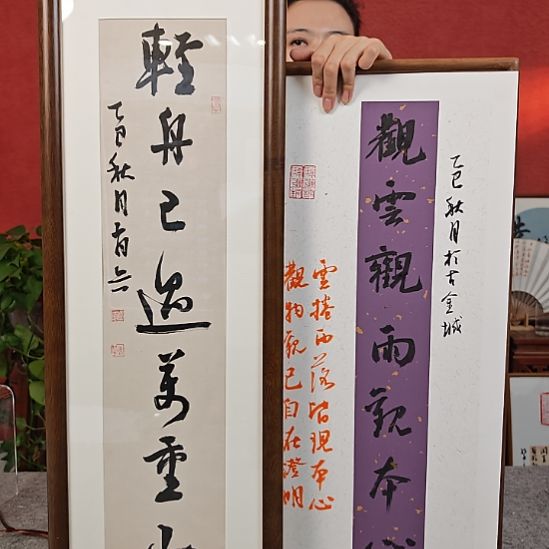 輕舟已過萬重山
乙巳秋月
觀雲觀雨觀本心
乙巳秋月於古金城
雲捲雨落皆現本心
觀物觀己自在澄明